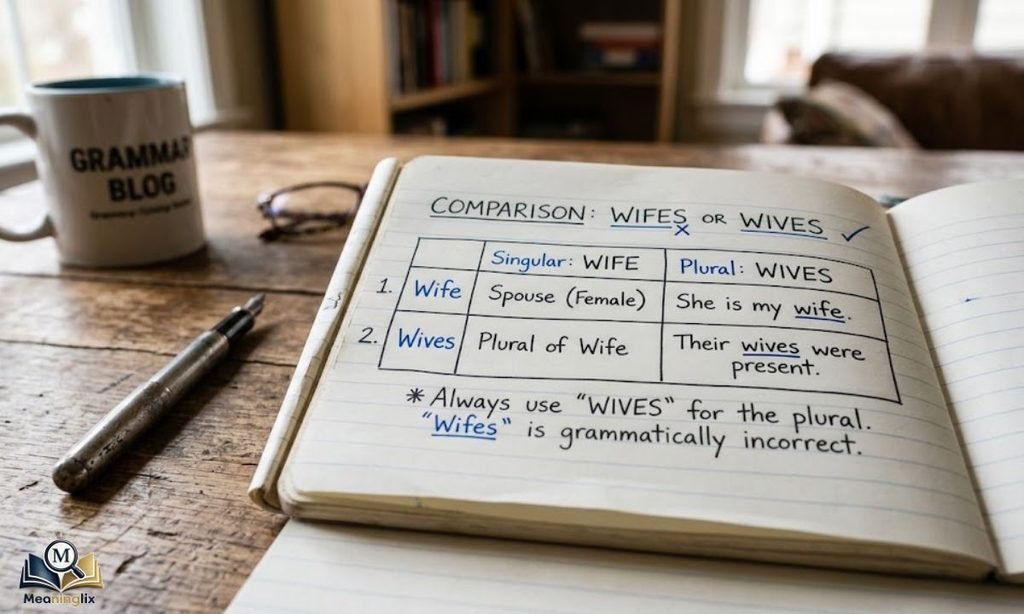 GRAMMAR
BLOG
COMPARISON: WIFES OR WIVES ✓
x
Singular: WIFE Plural: WIVES
1. Wife Spouse (Female) She is my wife.
2. Wives Plural of Wife Their wives were
present.
* Always use "WIVES" for the plural.
"Wifes" is grammatically incorrect.
M
Meaninglix